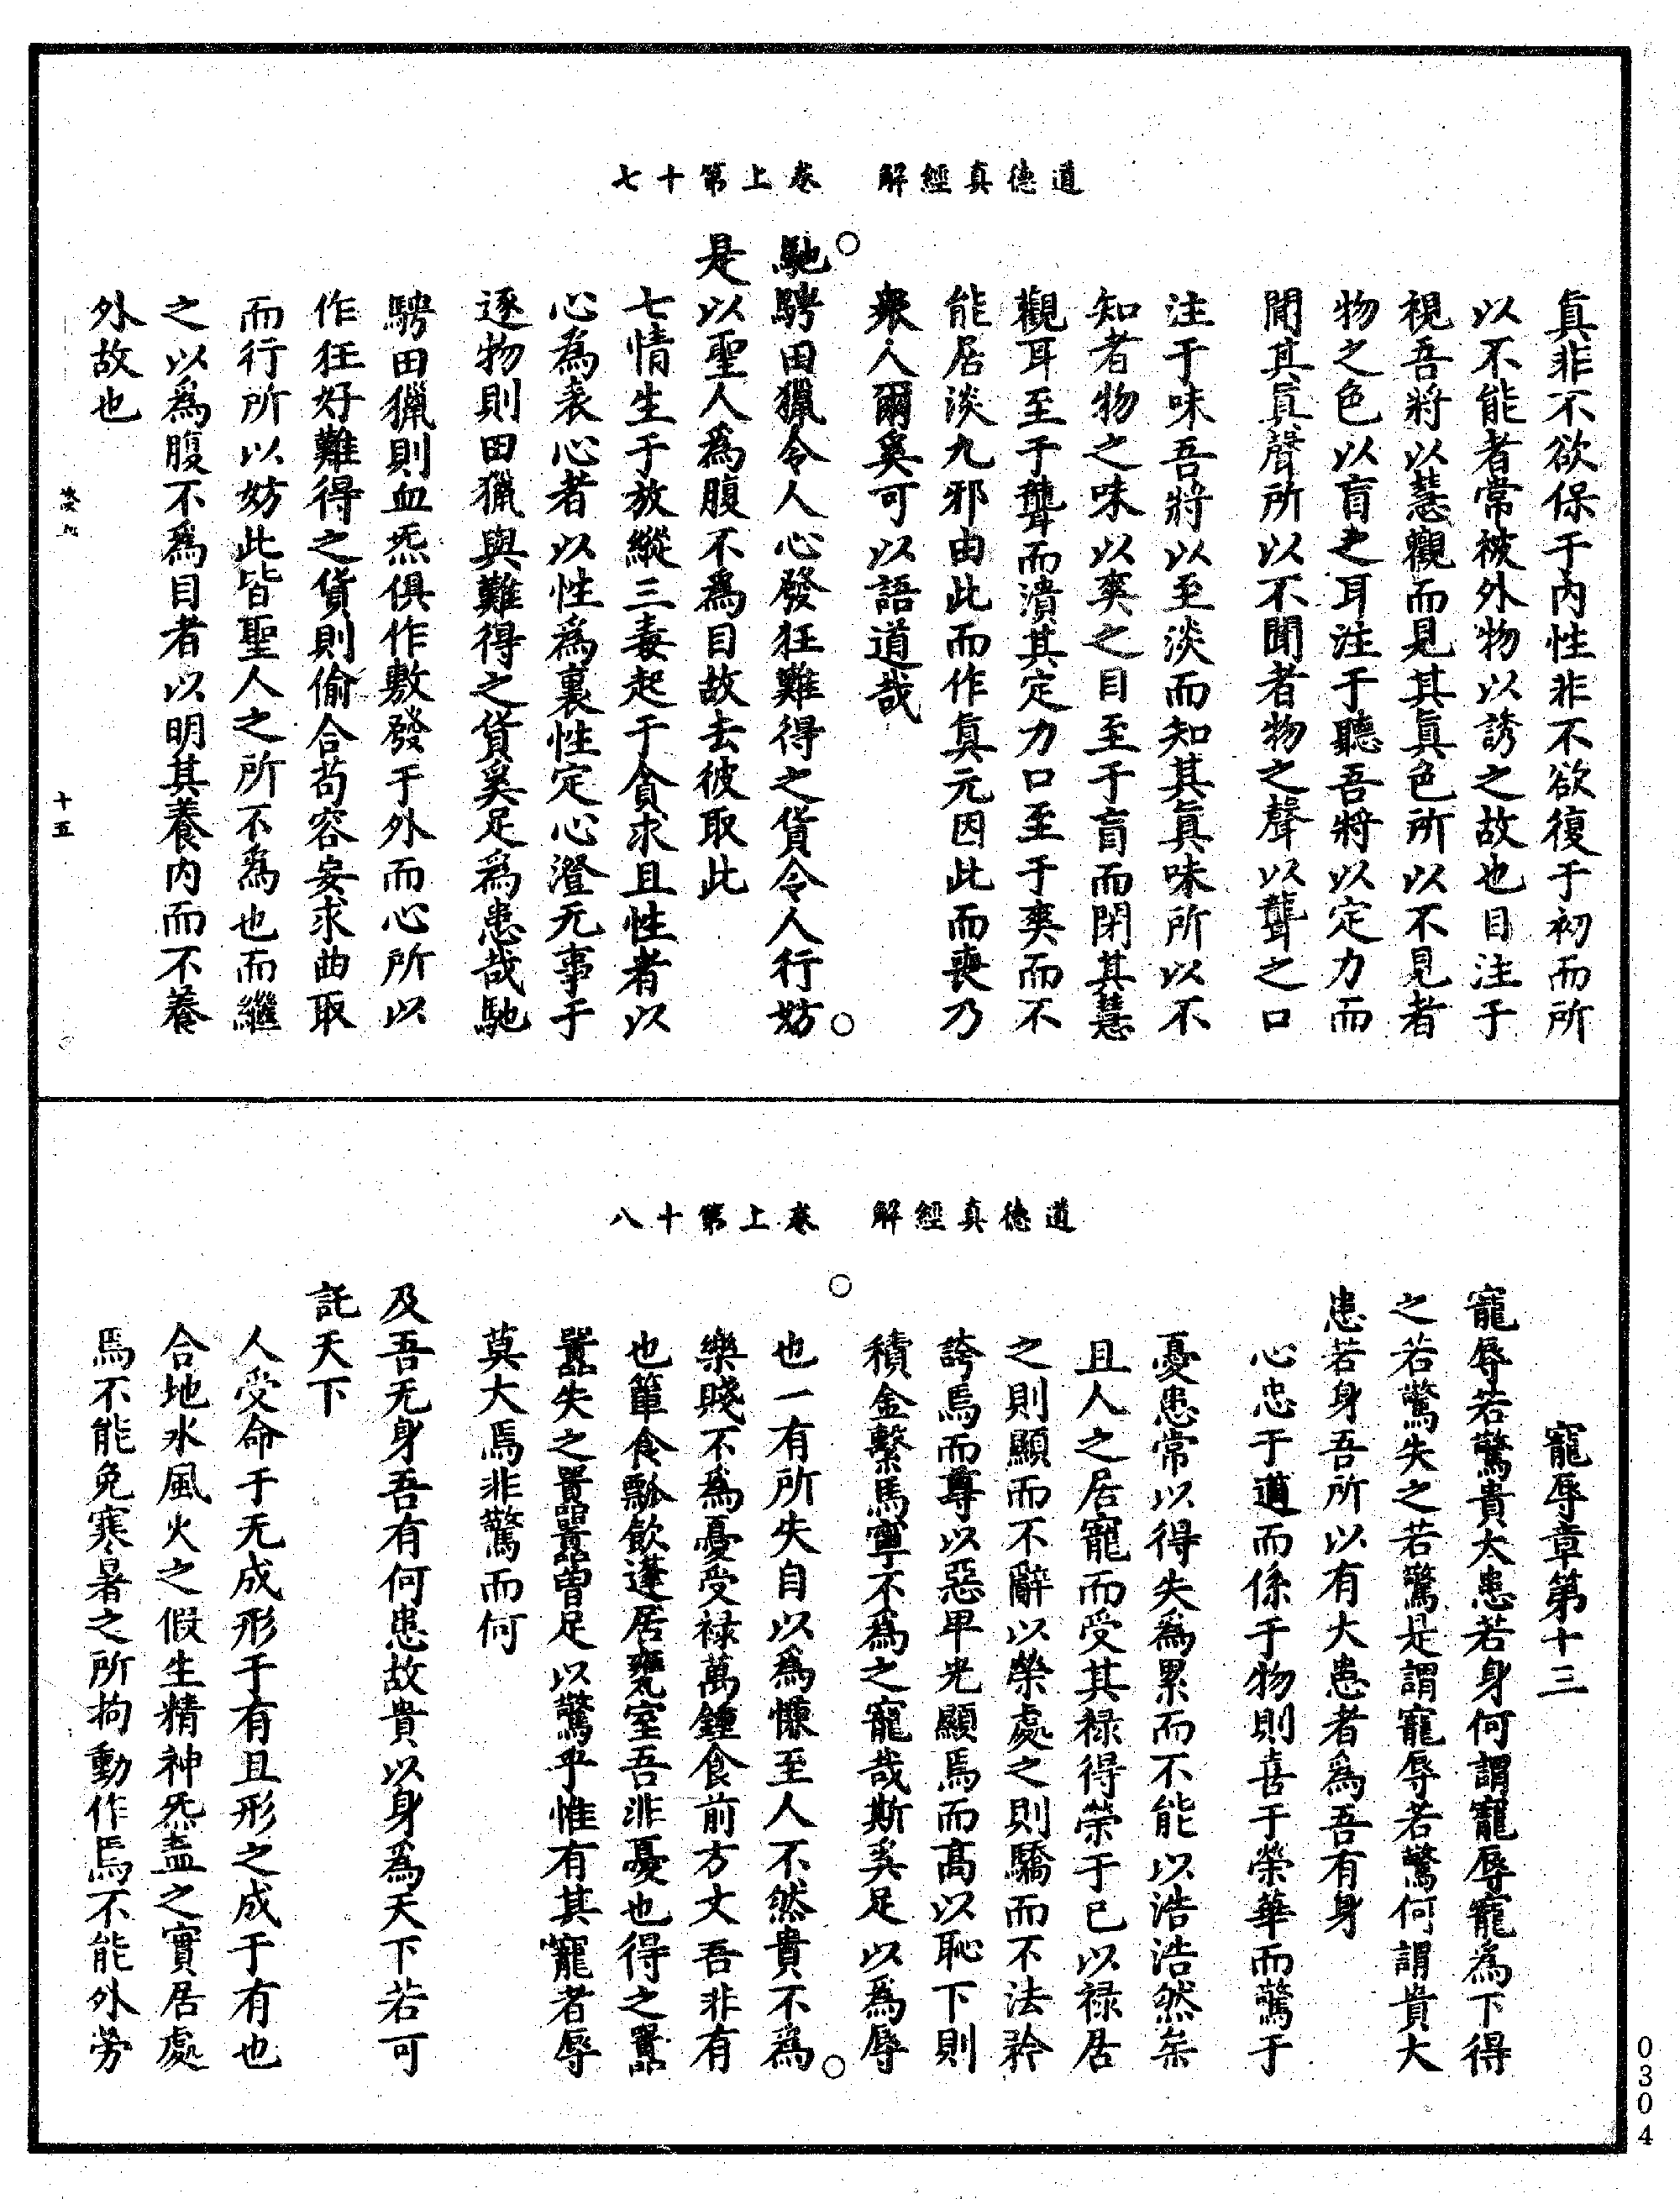 道德真經解　卷上第十七
真非不欲保于內性非不欲復于初而所
以不能者常被外物以誘之故也目注于
視吾將以慧觀而見其真色所以不見者
物之色以盲之耳注于聽吾將以定力而
聞其真聲所以不聞者物之聲以聾之口
注于味吾將以至淡而知其真味所以不
知者物之味以爽之目至于盲而閉其慧
觀耳至于聾而潰其定力口至于爽而不
能居淡九邪由此而作真元因此而喪乃
眾人爾奚可以語道哉
馳騁田獵令人心發狂難得之貨令人行妨
是以聖人為腹不為目故去彼取此
七情生于放縱三毒起于貪求且性者以
心為表心者以性為裏性定心澄无事于
逐物則田獵與難得之貨奚足為患哉馳
騁田獵則血炁俱作敷發于外而心所以
作狂好難得之貨則偷合苟容妄求曲取
而行所以妨此皆聖人之所不為也而繼
之以為腹不為目者以明其養內而不養
外故也
十五
道德真經解　卷上第十八
寵辱章第十三
寵辱若驚貴大患若身何謂寵辱寵為下得
之若驚失之若驚是謂寵辱若驚何謂貴大
患若身吾所以有大患者為吾有身
心忠于道而係于物則喜于榮華而驚于
憂患常以得失為累而不能以浩浩然矣
且人之居寵而受其祿得榮于已以祿居
之則顯而不辭以榮處之則驕而不法矜
誇焉而尊以惡卑光顯焉而高以恥下則
積金繫馬寧不為之寵哉斯奚足以為辱
也一有所失自以為慊至人不然貴不為
樂賤不為憂受祿萬鍾食前方丈吾非有
也簞食瓢飲蓬居甕室吾非憂也得之囂
囂失之囂囂曾足以驚乎惟有其寵者辱
莫大焉非驚而何
及吾无身吾有何患故貴以身為天下若可
託天下
人受命于无成形于有且形之成于有也
合地水風火之假生精神炁盍之實居處
焉不能免寒暑之所拘動作焉不能外勞
0304